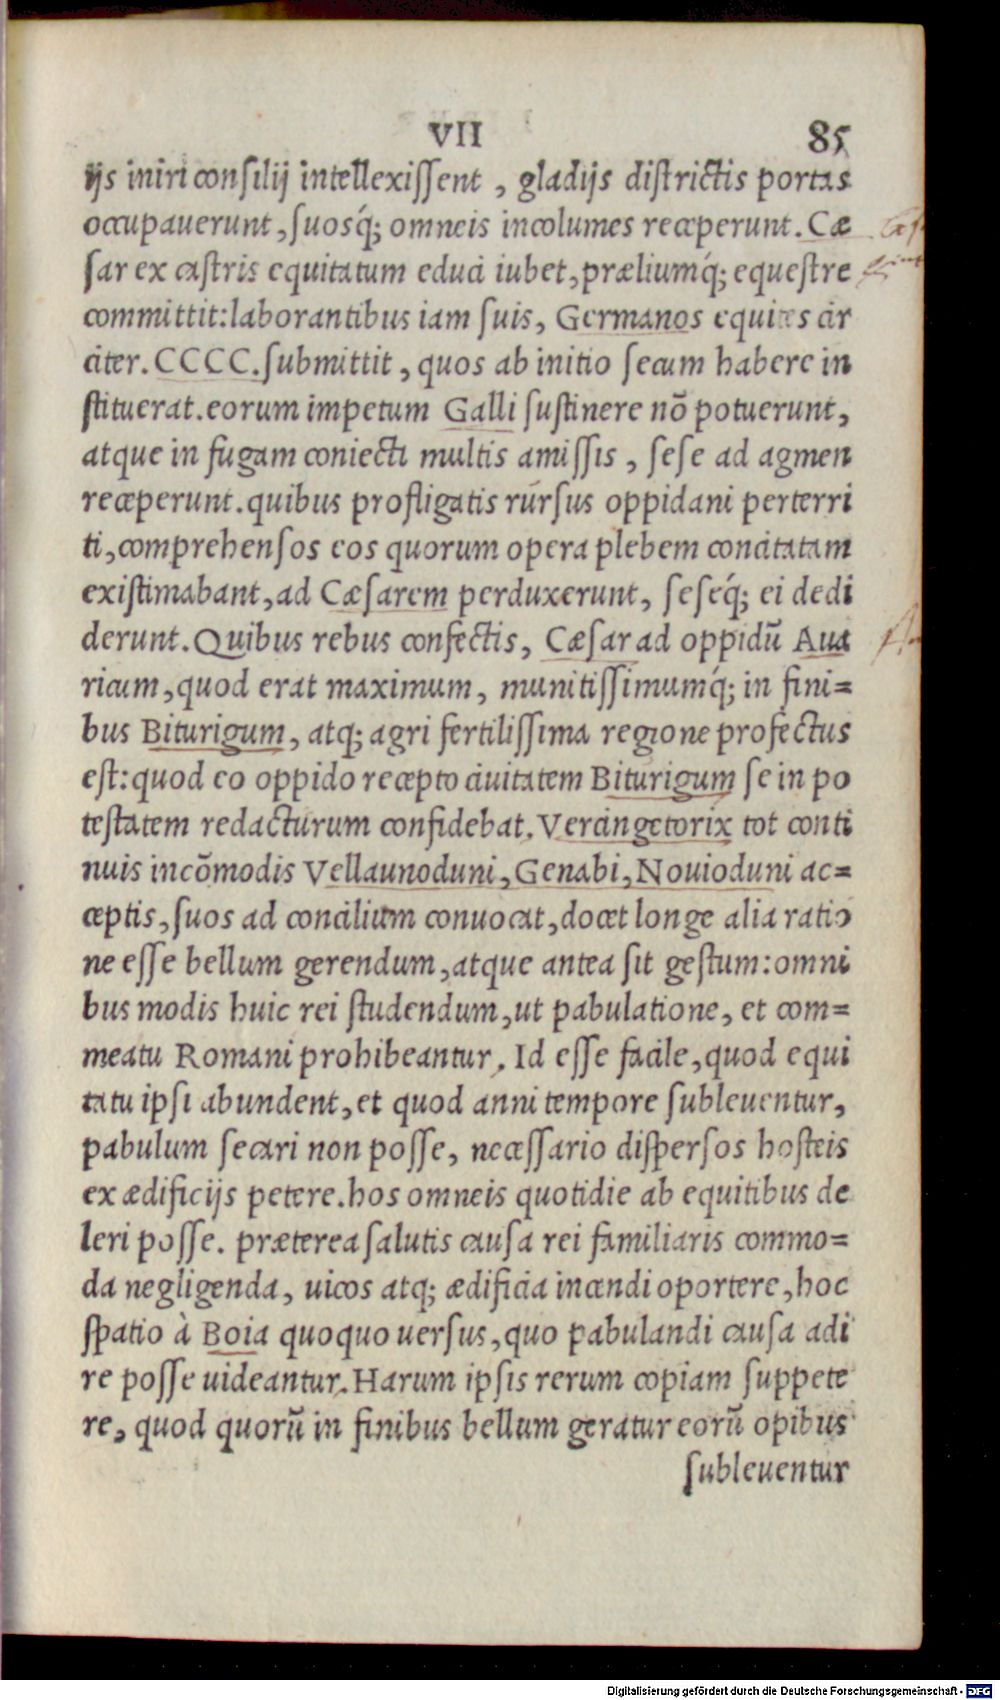 VII 85
ijs iniri consilij intellexissent, gladijs districtis portas
occupauerunt, suosq́; omneis incolumes receperunt. Cæ
sar ex castris equitatum educi iubet, præliumq́; equestre
committit: laborantibus iam suis, Germanos equites cir
citer. CCCC. submittit, quos ab initio secum habere in
stituerat. eorum impetum Galli sustinere nō potuerunt,
atque in fugam coniecti multis amissis, sese ad agmen
receperunt. quibus profligatis rursus oppidani perterri
ti, comprehensos eos quorum opera plebem concitatam
existimabant, ad Cæsarem perduxerunt, seseq́; ei dedi
derunt. Quibus rebus confectis, Cæsar ad oppidū Aua
ricum, quod erat maximum, munitissimumq́; in fini=
bus Biturigum, atq; agri fertilissima regione profectus
est: quod eo oppido recepto ciuitatem Biturigum se in po
testatem redacturum confidebat. Vercingetorix tot conti
nuis incōmodis Vellaunoduni, Genabi, Nouioduni ac=
ceptis, suos ad concilium conuocat, docet longe alia ratio
ne esse bellum gerendum, atque antea sit gestum: omni
bus modis huic rei studendum, ut pabulatione, et com=
meatu Romani prohibeantur. Id esse facile, quod equi
tatu ipsi abundent, et quod anni tempore subleuentur,
pabulum secari non posse, necessario dispersos hosteis
ex ædificijs petere. hos omneis quotidie ab equitibus de
leri posse. præterea salutis causa rei familiaris commo=
da negligenda, uicos atq; ædificia incendi oportere, hoc
spatio à Boia quoquo uersus, quo pabulandi causa adi
re posse uideantur. Harum ipsis rerum copiam suppete
re, quod quorū in finibus bellum geratur eorū opibus
subleuentur
Digitalisierung gefördert durch die Deutsche Forschungsgemeinschaft - DFG